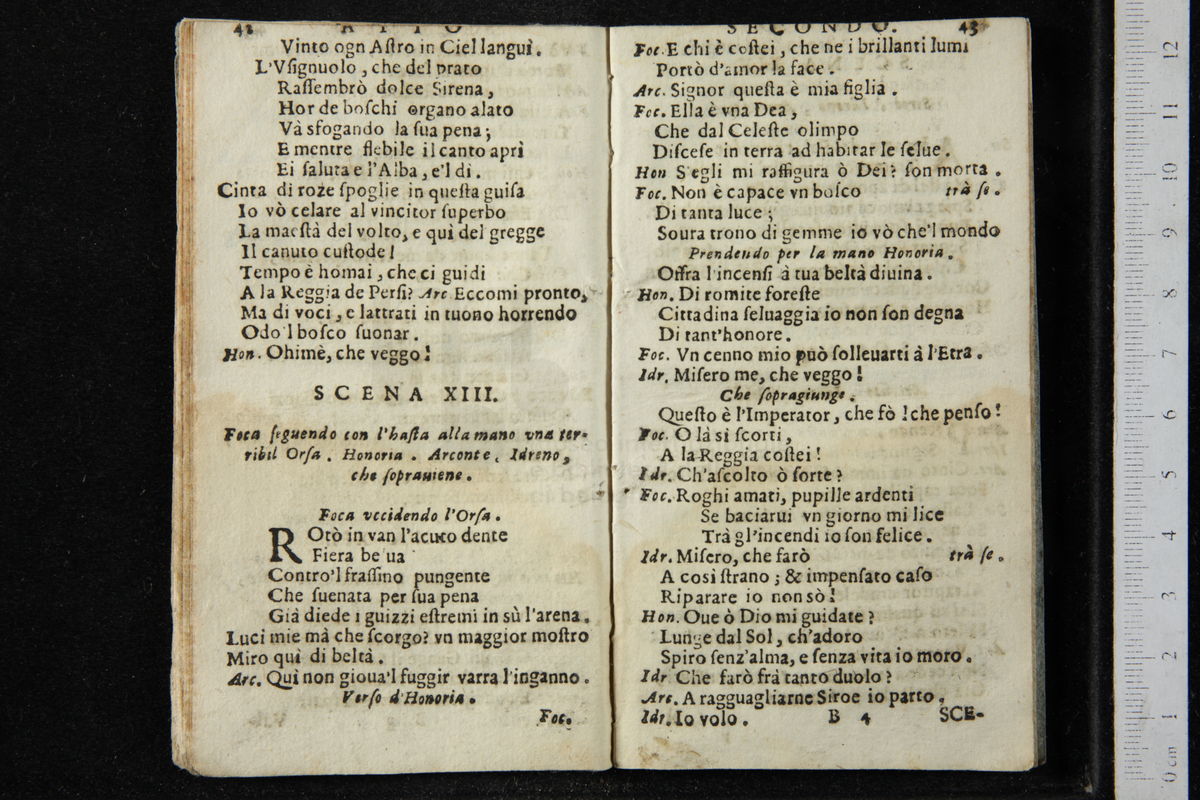 42 ATTO
Vinto ogn Aſtro in Ciel languì.
L'Vſignuolo, che del prato
Raſſembrò dolce Sirena,
Hor de boſchi organo alato
Và sfogando la ſua pena;
E mentre flebile il canto aprì
Ei ſaluta e l'Alba, e'l dì.
Cinta di roze ſpoglie in queſta guiſa
Io vò celare al vincitor ſuperbo
La maeſtà del volto, e quì del gregge
Il canuto cuſtode!
Tempo è homai, che ci guidi
A la Reggia de Perſi? Arc Eccomi pronto,
Ma di voci, e lattrati in tuono horrendo
Odo'l boſco ſuonar.
Hon. Ohimè, che veggo!
SCENA XIII.
Foca ſeguendo con l'haſta alla mano vna ter-
ribil Orſa. Honoria. Arconte, Idreno,
che ſoprauiene.
Foca vccidendo l'Orſa.
ROtò in van l'acuto dente
Fiera be ua
Contro'l fraſſino pungente
Che ſuenata per ſua pena
Già diede i guizzi eſtremi in sù l'arena.
Luci mie mà che ſcorgo? vn maggior moſtro
Miro quì di beltà.
Arc. Quì non gioua'l fuggir varra l'inganno.
Verſo d'Honoria.
Foc.
SECONDO. 43
Foc. E chi è coſtei, che ne i brillanti lumi
Portò d'amor la face.
Arc. Signor queſta è mia figlia.
Foc. Ella è vna Dea,
Che dal Celeſte olimpo
Diſceſe in terra ad habitar le ſelue.
Hon S'egli mi raffigura ò Dei? ſon morta.
Foc. Non è capace vn boſco trà ſe.
Di tanta luce;
Soura trono di gemme io vò che'l mondo
Prendendo per la mano Honoria.
Offra l'incenſi à tua beltà diuina.
Hon. Di romite foreſte
Cittadina ſeluaggia io non ſon degna
Di tant'honore.
Foc. Vn cenno mio può ſolleuarti à l'Etra.
Idr. Miſero me, che veggo!
Che ſopragiunge.
Queſto è l'Imperator, che fò! che penſo!
Foc. O là si ſcorti,
A la Reggia coſtei!
Idr. Ch'aſcolto ò ſorte?
Foc. Roghi amati, pupille ardenti
Se baciarui vn giorno mi lice
Trà gl'incendi io ſon felice.
Idr. Miſero, che farò trà ſe.
A così ſtrano; & impenſato caſo
Riparare io non sò!
Hon. Oue ò Dio mi guidate?
Lunge dal Sol, ch'adoro
Spiro ſenz'alma, e ſenza vita io moro.
Idr Che farò frà tanto duolo?
Arc. A ragguagliarne Siroe io parto,
Idr. Io volo. B 4 SCE-
0 cm 1 2 3 4 5 6 7 8 9 10 11 12